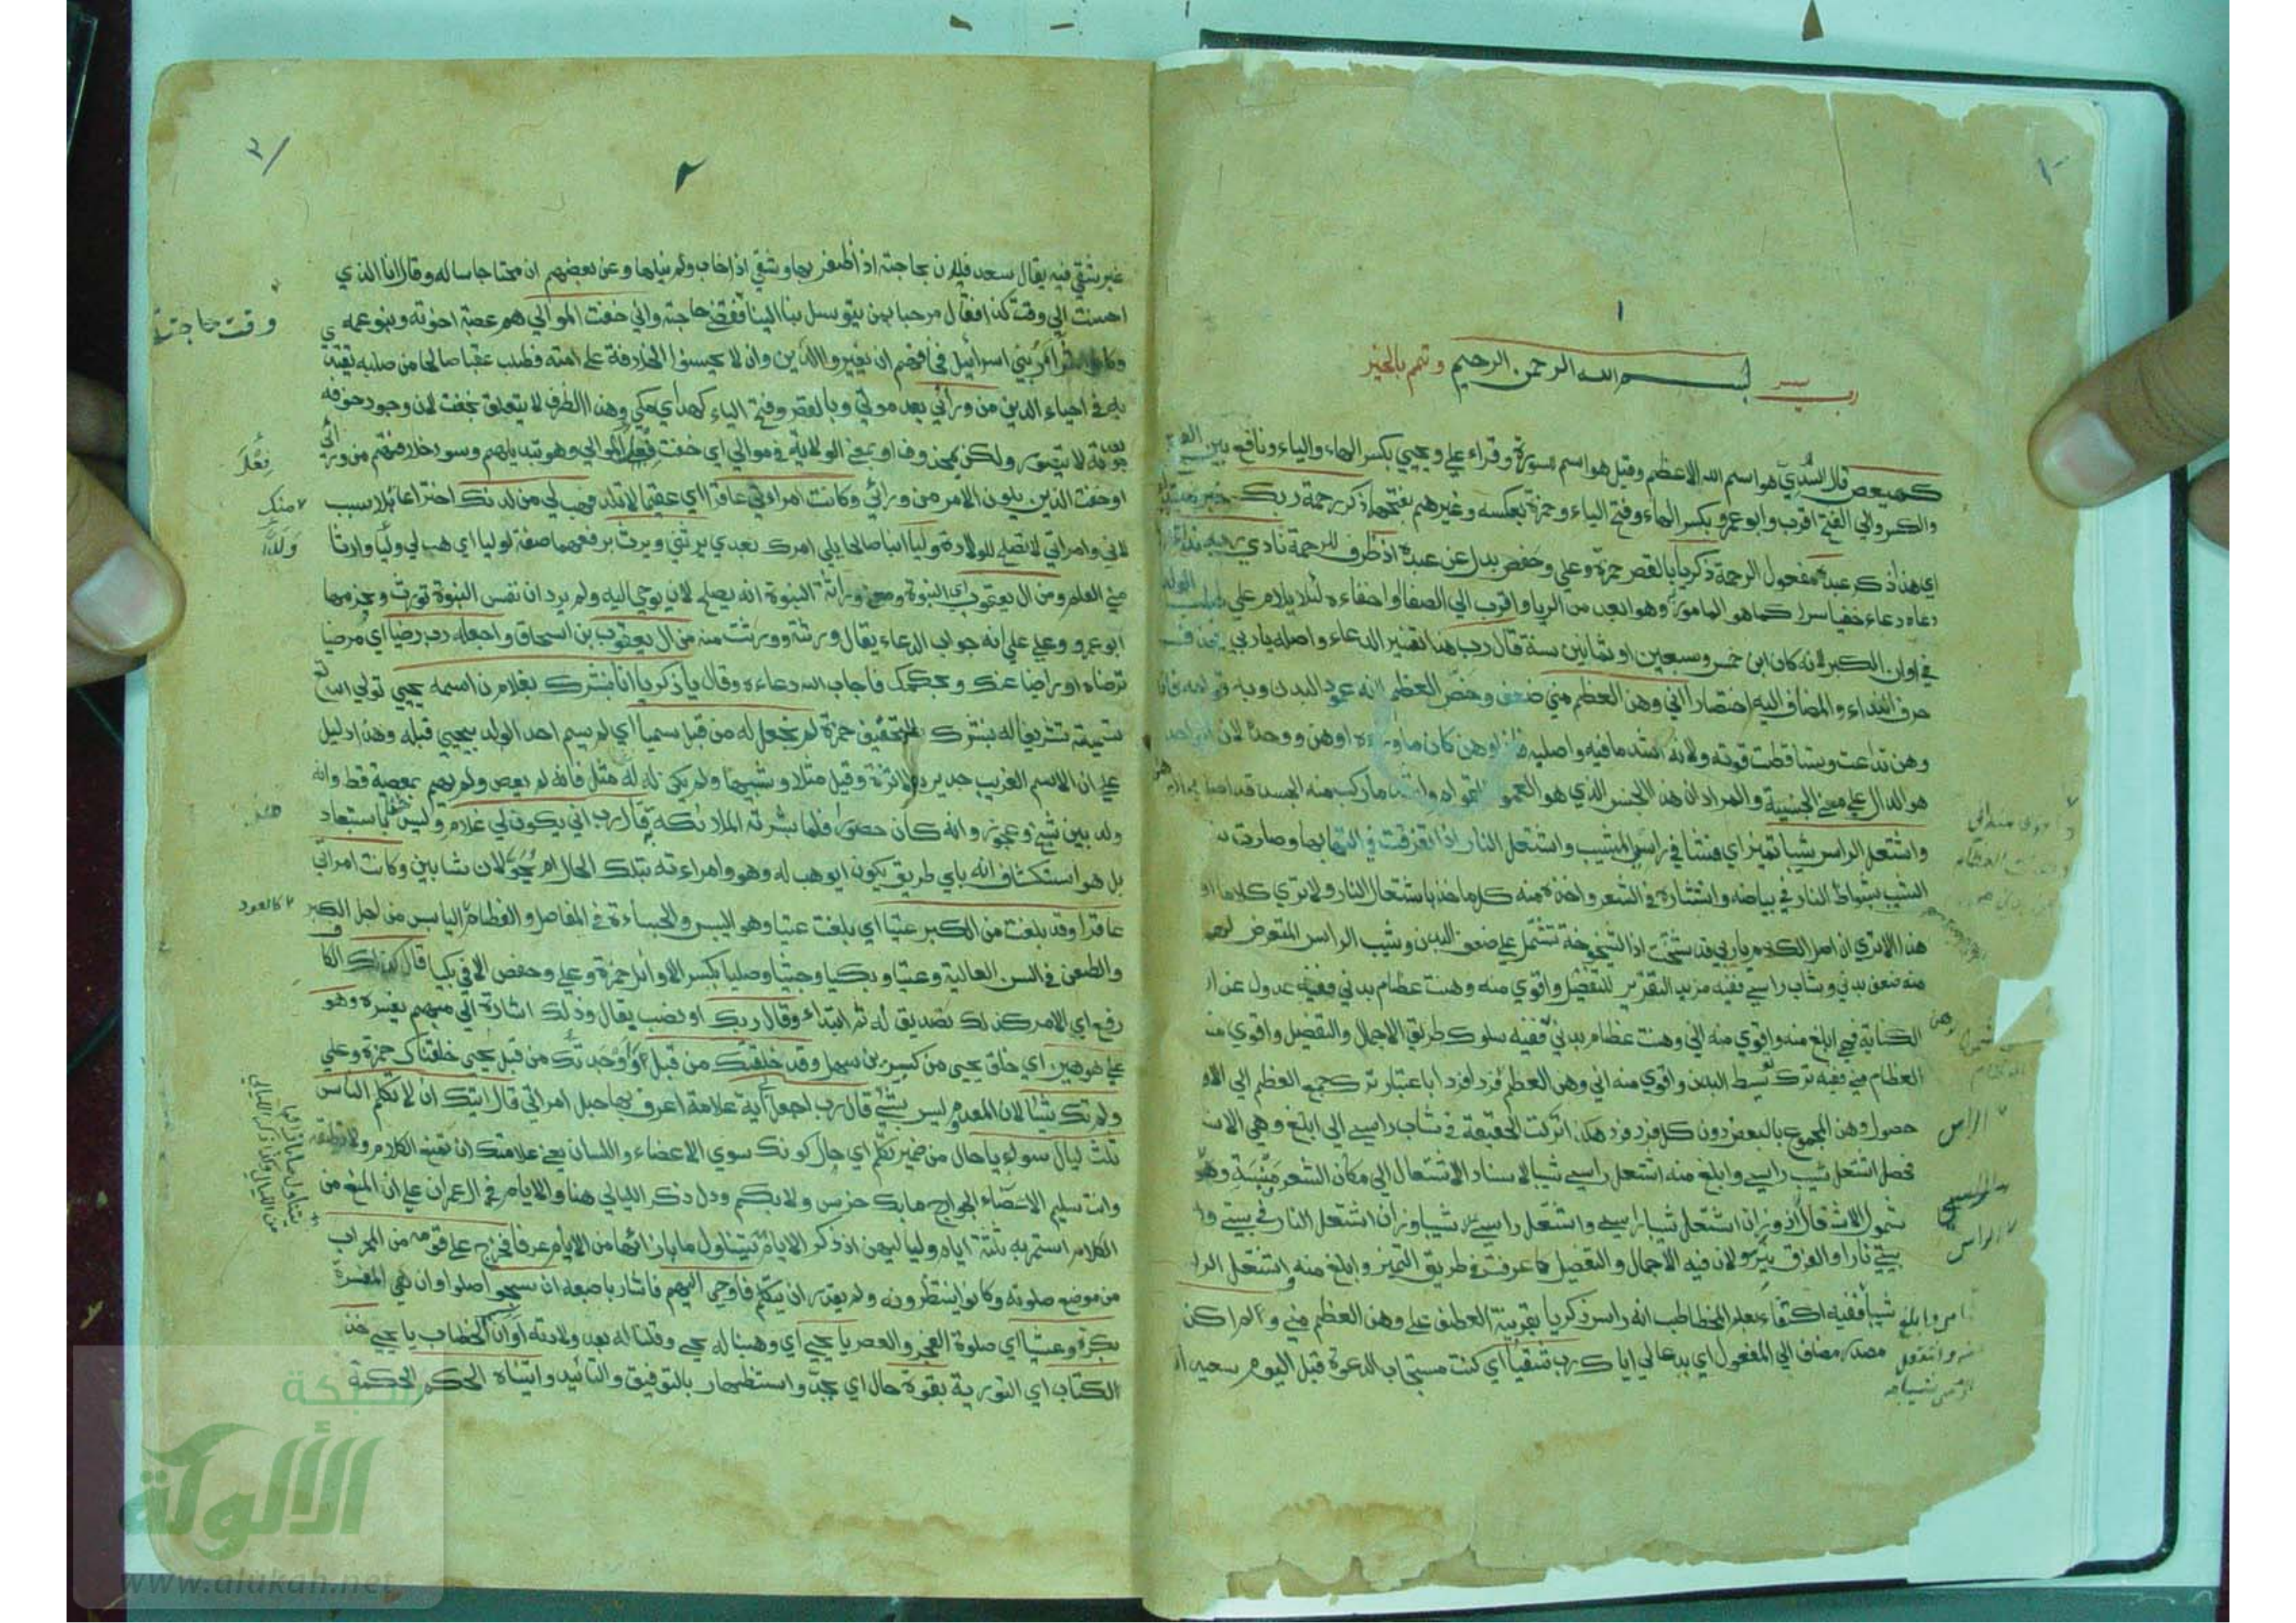 ١
رب يسر بسم الله الرحمن الرحيم وتمم بالخير
كهيعص قال السدي هو اسم الله الاعظم وقيل هو اسم للسورة وقراء علي ويحيي بكسر الهاء والياء ونافع بين الفتح
والكسر والي الفتح اقرب وابو عمرو بكسر الهاء وفتح الياء وحمزة بعكسه وغيرهم بفتحهما ذكر رحمة ربك خبر مبتدأ
اي هذا ذكر عبده مفعول الرحمة زكريا بالقصر حمزة وعلي وحفص بدل من عبده اذ ظرف للرحمة نادي ربه نداء
دعاه دعاء خفيا سرا كما هو المامور وهو ابعد من الريا واقرب الي الصفا او اخفاءه لئلا يلام علي طلب الولد
في اوان الكبر لانه كان ابن خمس وسبعين او ثمانين سنة قال رب هذا تفسير الدعاء واصله يا ربي فحذف
حرف النداء والمضاف اليه اختصارا اني وهن العظم مني ضعف وخص العظم لانه عمود البدن وبه قوامه فاذا
وهن تداعت وتساقطت قوته ولانه اشد ما فيه واصلبه فاذا وهن كان ما وراءه اوهن ووحد لان الواحد
هو الدال علي معني الجنسية والمراد ان هذا الجنس الذي هو العمود والقوام واشد ما تركب منه الجسد قد اصابه الوهن
واشتعل الراس شيبا تميز اي فشا في راسي الشيب واشتعل النار اذا تفرقت في التهابها وصارت
الشيب بشواظ النار في بياضه وانتشاره في الشعر واخذه منه كل ماخذ باشتعال النار ولا تري كلاما
هذا الا تري ان اصل الكلام يا ربي قد شخت اذ الشيخوخة تشتمل علي ضعف البدن وشيب الراس المتعرض
منه ضعف بدني وشاب راسي ففيه مزيد التقرير للتفصيل واقوي منه وهنت عظام بدني ففيه عدول عن
الكناية فهي ابلغ منه واقوي منه اني وهنت عظام بدني ففيه سلوك طريقي الاجمال والتفصيل واقوي منه
العظام مني ففيه ترك توسط البدن واقوي منه اني وهن العظم فردا فردا باعتبار ترك جمع العظم الي
حصول وهن المجموع بالبعض دون كل فرد فرد هكذا تركت الحقيقة في شاب راسي الي ابلغ وهي
فحصل اشتعل شيب راسي وابلغ منه اشتعل راسي شيبا لاسناد الاشتعال الي مكان الشعر ومنبته وهو
شمول الاشتعال اذ وزان اشتعل شيبا راسي واشتعل راسي شيبا وزان اشتعل النار في بيتي
بيتي نارا والفرق نير ولان فيه الاجمال والتفصيل كما عرفت في طريق التميز وابلغ منه واشتعل الراس
شيبا ففيه اكتفاء بعلم المخاطب انه راس زكريا بقرينة العطف علي وهن العظم مني ولم اكن
مصدر مضاف الي المفعول اي بدعائي اياك رب شقيا اي كنت مستجاب الدعوة قبل اليوم سعيدا
الراس
الراس
٢
٢
غير شقي فيه يقال سعد فلان بحاجته اذا ظفر بها وشقي اذا خاب ولم ينلها وعن بعضهم ان محتاجا ساله وقال انا الذي
احسنت الي وقت كذا فقال مرحبا بمن يتوسل بنا الينا فقضي حاجته واني خفت الموالي هم عصبة اخوته وبنو عمه
وكانوا شرار بني اسرائيل فخافهم ان يغيروا الدين وان لا يحسنوا الخلافة علي امته فطلب عقبا صالحا من صلبه يقتدي
به في احياء الدين من ورائي بعد موتي وبالقصر وفتح الياء كهداي مكي وهذا الظرف لا يتعلق بخفت لان وجود خوفه
بعد موته لا يتصور ولكن بمحذوف او بمعني الولاية في موالي اي خفت فعل الموالي وهو تبديلهم وسوء خلافتهم من ورائي
او خفت الذين يلون الامر من ورائي وكانت امراتي عاقرا اي عقيما لا تلد فهب لي من لدنك اختراعا بلا سبب
لاني وامراتي لا نصلح للولادة وليا ابنا صالحا يلي امرك بعدي يرثني ويرث برفعهما صفة لوليا اي هب لي وليا وارثا
مني العلم ومن ال يعقوب اي النبوة ومعني وراثة النبوة انه يصلح لان يوحي اليه ولم يرد ان نفس النبوة تورث وجزمهما
ابو عمرو وعلي علي انه جواب الدعاء يقال ورثته وورثت منه من ال يعقوب بن اسحاق واجعله رب رضيا اي مرضيا
ترضاه او راضيا عنك وبحكمك فاجاب الله دعاءه وقال يا زكريا انا نبشرك بغلام اسمه يحيي تولي الله تع
تسميته تشريفا له نبشرك بالتخفيف حمزة لم نجعل له من قبل سميا اي لم يسم احد الولد بيحيي قبله وهذا دليل
علي ان الاسم الغريب جدير بالاثرة وقيل مثلا وشبيها ولم يكن له مثل فانه لم يعص ولم يهم بمعصية قط وانه
ولد بين شيخ وعجوز وانه كان حصورا فلما بشرته الملائكة به قال رب اني يكون لي غلام وليس هذا باستبعاد
بل هو استكشاف انه باي طريق يكون ايوهب له وهو وامراءته بتلك الحال ام يحولان شابين وكانت امراتي
عاقرا وقد بلغت من الكبر عتيا اي بلغت عتيا وهو اليبس والجساءة في المفاصل والعظام اليابس من اجل الكبر
والطعن في السن العالية وعتيا وبكيا وجثيا وصليا بكسر الاوائل حمزة وعلي وحفص الا في بكيا قال كذلك الكاف
رفع اي الامر كذلك تصديق له ثم ابتداء وقال ربك او نصب بقال وذلك اشارة الي مبهم يفسره وهو
علي هو هين اي خلق يحيي من كبيرين سهل وقد خلقتك من قبل اوجدتك من قبل يحيي خلقناك حمزة وعلي
ولم تك شيئا لان المعدوم ليس بشيء قال رب اجعل لي اية علامة اعرف بها حبل امراتي قال ايتك ان لا تكلم الناس
ثلث ليال سويا حال من ضمير تكلم اي حال كونك سوي الاعضاء واللسان يعني علامتك ان تمنع الكلام ولا تطيقه
وانت سليم الاعضاء الجوارح ما بك خرس ولا بكم ودل ذكر الليالي هنا والايام في ال عمران علي ان المنع من
الكلام استمر به ثلثة ايام ولياليهن اذ ذكر الايام يتناول ما بازائها من الايام عرفا فخرج علي قومه من المحراب
من موضع صلوته وكانوا ينتظرونه ولم يقدر ان يتكلم فاوحي اليهم فاشار باصبعه ان سبحوا صلوا وان هي المفسرة
بكرة وعشيا اي صلوة الفجر والعصر يا يحيي اي وهبنا له يحيي وقلنا له بعد ولادته اوان الخطاب يا يحيي خذ
الكتاب اي التورية بقوة حال اي بجد واستظهار بالتوفيق والتائيد واتيناه الحكم الحكمة
وقت حاجته
فعل
منك
ولدا
كالعود
شبكة
الألوكة
www.alukah.net